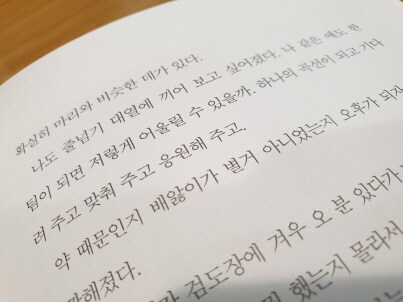 확실히 마리와 비슷한 데가 있다.
나도 줄넘기 대열에 끼어 보고 싶어졌다. 나 같은 애도 한
팀이 되면 저렇게 어울릴 수 있을까. 하나의 곡선이 되고 기다
려 주고 맞춰 주고 응원해 주고.
약 때문인지 배앓이가 별거 아니었는지 오후가 되자
해졌다.
검도장에 겨우 오 분 있다가
했는지 몰라서